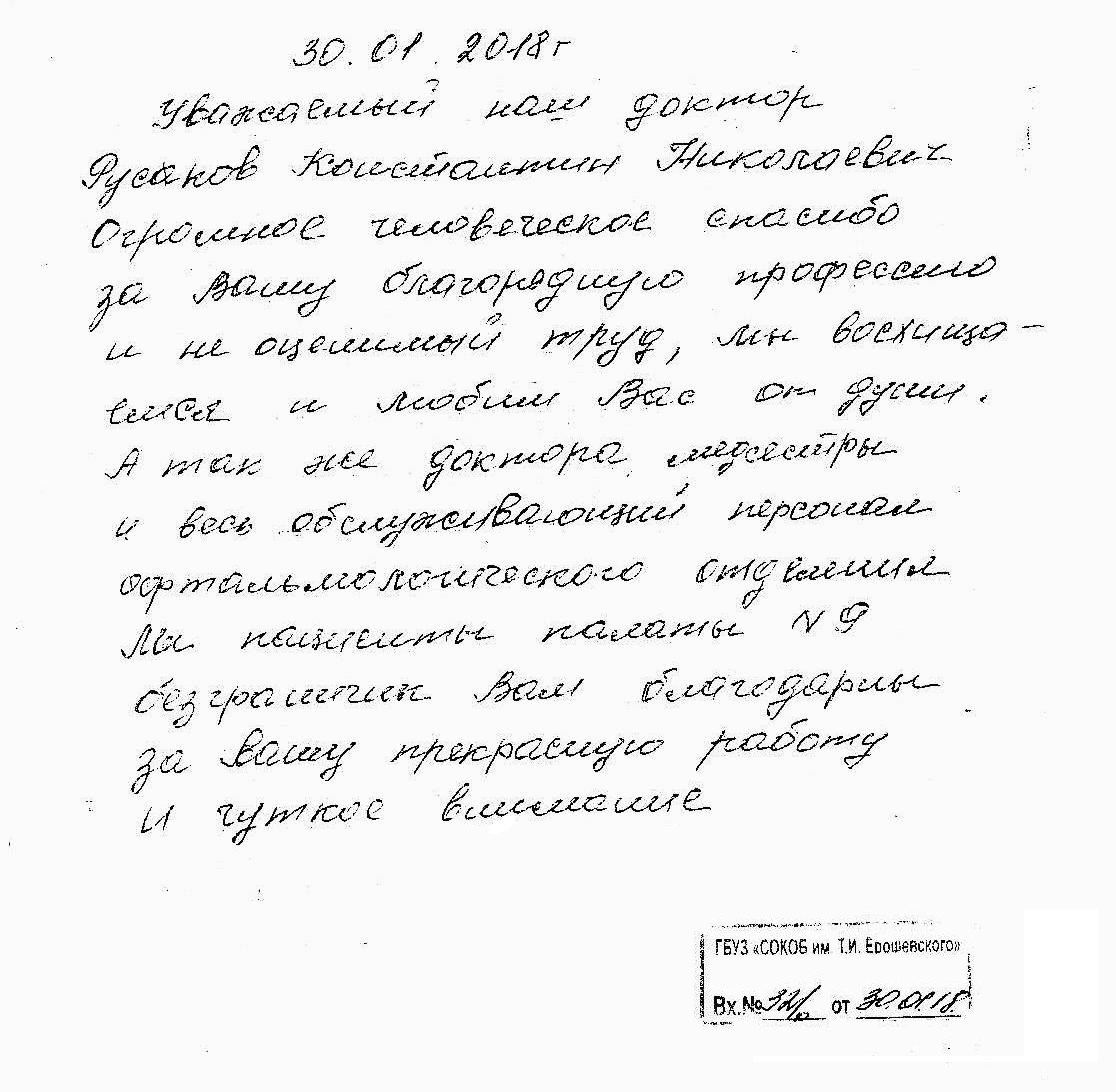 30.01.2018г
Уважаемый наш доктор
Русаков Константин Николаевич
Огромное человеческое спасибо
за Вашу благорядную профессию
и не оценимый труд, мы восхища-
емся и любим Вас от души.
А так же доктора, медсестры
и весь обслуживающий персонал
офтальмологического отделения
Мы пациенты палаты N 9
безгранична Вам благодарны
за вашу прекрасную работу
и чуткое внимание
ГБУЗ «СОКОБ им. Т.И. Ерошевского»
Вх.№ 32/ от 30.01.18.